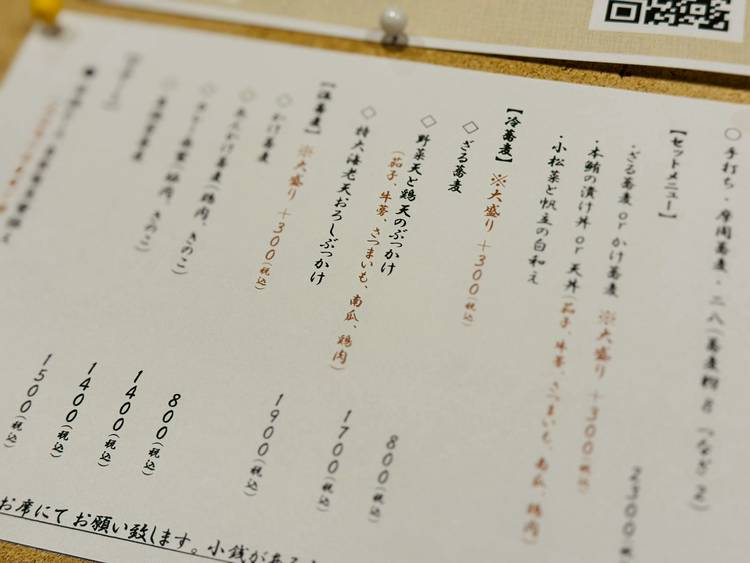 ○ 手打ち・石臼蕎麦・二八(蕎麦粉8 つなぎ2)
【セットメニュー】
・ざる蕎麦 or かけ蕎麦 ※大盛り +300(税込)
2300(税込)
・本鮪の漬け丼 or 天丼(茄子、牛蒡、さつまいも、南瓜、鶏肉)
・小松菜と帆立の白和え
【冷蕎麦】 ※大盛り +300(税込)
◇ ざる蕎麦 800(税込)
◇ 野菜天と鶏天のぶっかけ 1700(税込)
(茄子、牛蒡、さつまいも、南瓜、鶏肉)
◇ 特大海老天おろしぶっかけ 1900(税込)
【温蕎麦】 ※大盛り +300(税込)
◇ かけ蕎麦 800(税込)
◇ あんかけ蕎麦(鶏肉、きのこ) 1400(税込)
◇ カレー蕎麦(豚肉、きのこ) 1400(税込)
◇ 1500(税込)
お席にてお願い致します。小銭がある